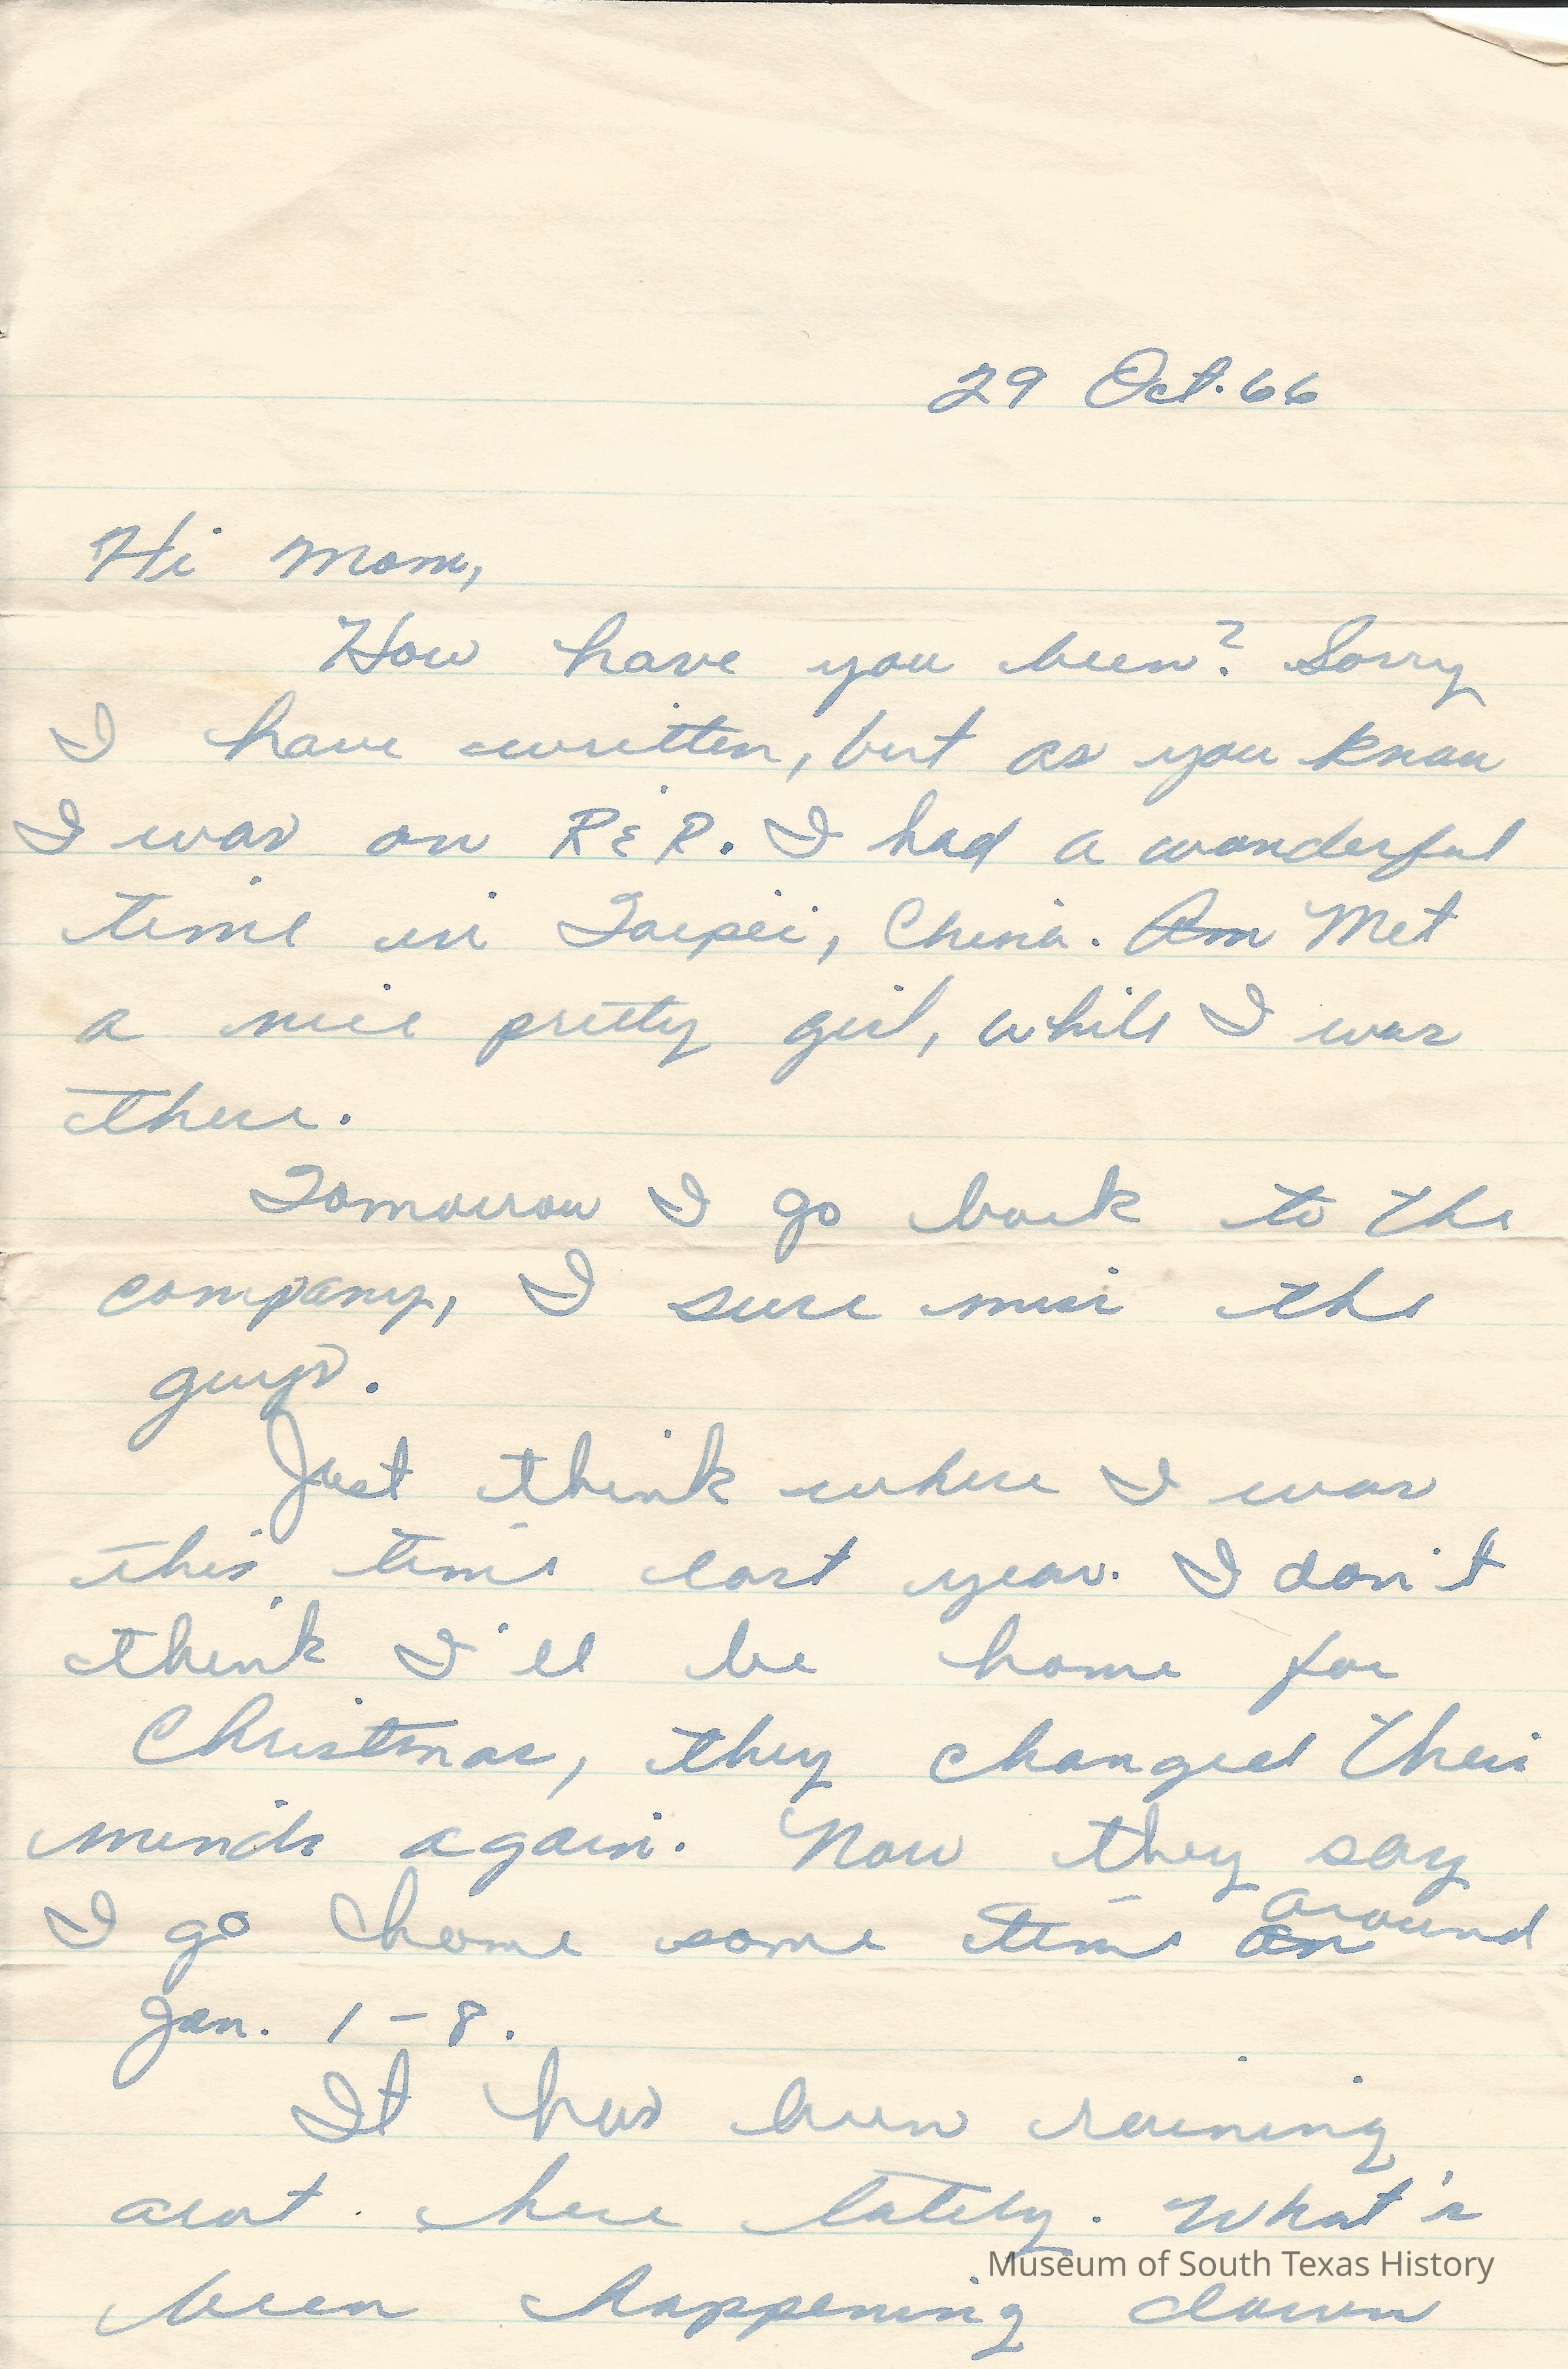 29 Oct. 66
Hi Mom,
How have you been? Sorry
I have written, but as you know
I was on R&R. I had a wonderful
time in Taipei, China. Am Met
a nice pretty girl, while I was
there.
Tomorrow I go back to the
company, I sure miss the
guys.
Just think where I was
this time last year. I don't
think I'll be home for
Christmas, they changed their
minds again. Now they say
I go home some time an around
Jan. 1-8.
It has been raining
out here lately. What's
been happening down
Museum of South Texas History